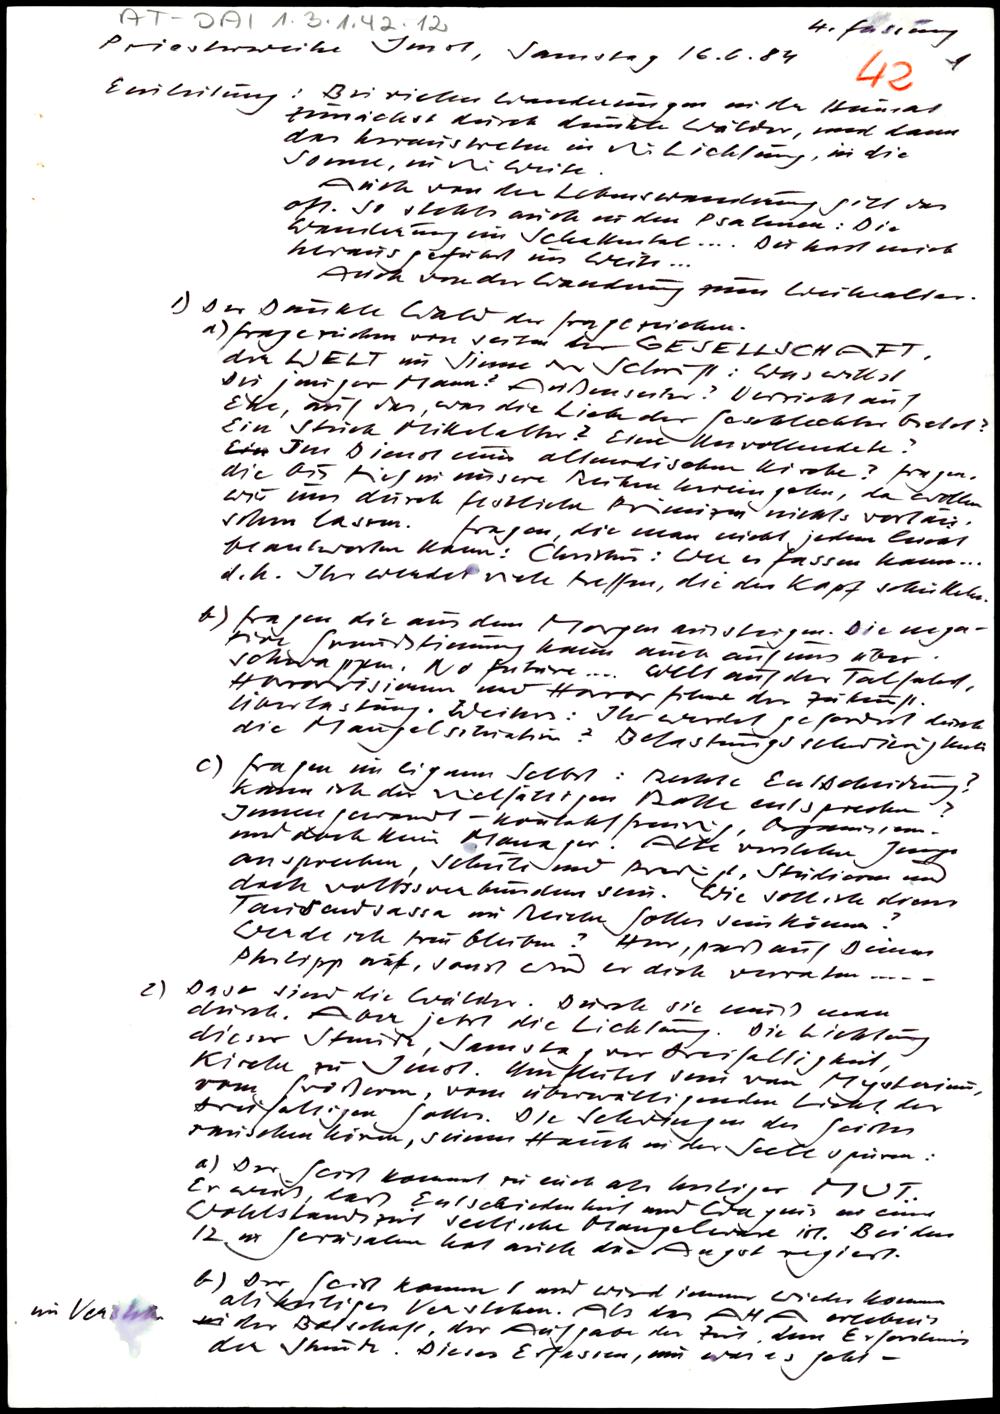 AT-DAI 1.3.1.42.12
4. Fassung
Priesterweihe Imst, Samstag 16.6.84
42
1
Einleitung: Bei vielen Wanderungen in der Heimat
zunächst durch dunkle Wälder, und dann
das heraustreten in die Lichtung, in die
Sonne, in die Weite.
Auch von der Lebenswanderung gilt das
oft. So stehts auch in den Psalmen: Die
Wanderung im Schattental .... Du hast mich
herausgeführt ins Weite...
Auch von der Wanderung zum Weihealtar.
1) Der Dunkle Wald der Fragezeichen.
a) Fragezeichen von seiten der GESELLSCHAFT,
der WELT im Sinne der Schrift: Was willst
Du junger Mann? Außenseiter? Verzicht auf
Ehe, auf das, was die Liebe der Geschlechter bietet?
Ein Stück Mittelalter? Eine Unvollendete?
Im Dienst einer altmodischen Kirche? Fragen,
die bis tief in unsere Reihen hereingehen, da wollen
wir uns durch festliche Primizen nichts vortäu-
schen lassen. Fragen, die man nicht jedem
beantworten kann: Christus: Wer es fassen kann...
d.h. Ihr werdet viele treffen, die den Kopf schütteln.
b) Fragen die aus dem Morgen aufsteigen. Die nega-
tive Grundstimmung kann auch auf uns über-
schwappen. No future.... Welt auf der Talfahrt,
Horrorvisionen und Horrorfilme der Zukunft.
Überlastung. Weiters: Ihr werdet gefordert durch
die Mangelsituation? Belastungsschwierigkeiten
c) Fragen im eigenen Selbst: Rechte Entscheidung?
Kann ich der vielfältigen Rolle entsprechen?
Innengewandt - kontaktfreudig, Organisieren
und doch kein Manager. Alte verstehen Junge
ansprechen, Schule und Predigt, Studieren und
doch volksverbunden sein. Wie soll ich dieser
Tausendsassa im Reiche Gottes sein können?
Werde ich treu bleiben? Herr, paß auf Deinen
Philipp auf, sonst wird er dich verraten -----
2) Das sind die Wälder. Durch sie muß man
durch. Aber jetzt die Lichtung. Die Lichtung
dieser Stunde, Samstag vor Dreifaltigkeit,
Kirche zu Imst. Umflutet sein vom Mysterium,
vom Größeren, vom überwältigenden Licht des
dreifaltigen Gottes. Die Schwingen des Geistes
rauschen hören, seinen Hauch in der Seele spüren:
a) Der Geist kommt zu euch als heiliger MUT.
Er weiß, daß Entschiedenheit und Wagnis in einer
Wohlstandszeit seelische Mangelware ist. Bei den
12 in Jerusalem hat auch die Angst regiert.
b) Der Geist kommt und wird immer wieder kommen
als heiliges Verstehen. Als das AHA erlebnis
im Verstehen der Botschaft, der Aufgabe der Zeit, dem Erfordernis
der Stunde. Dieses Erfassen, um was es geht -